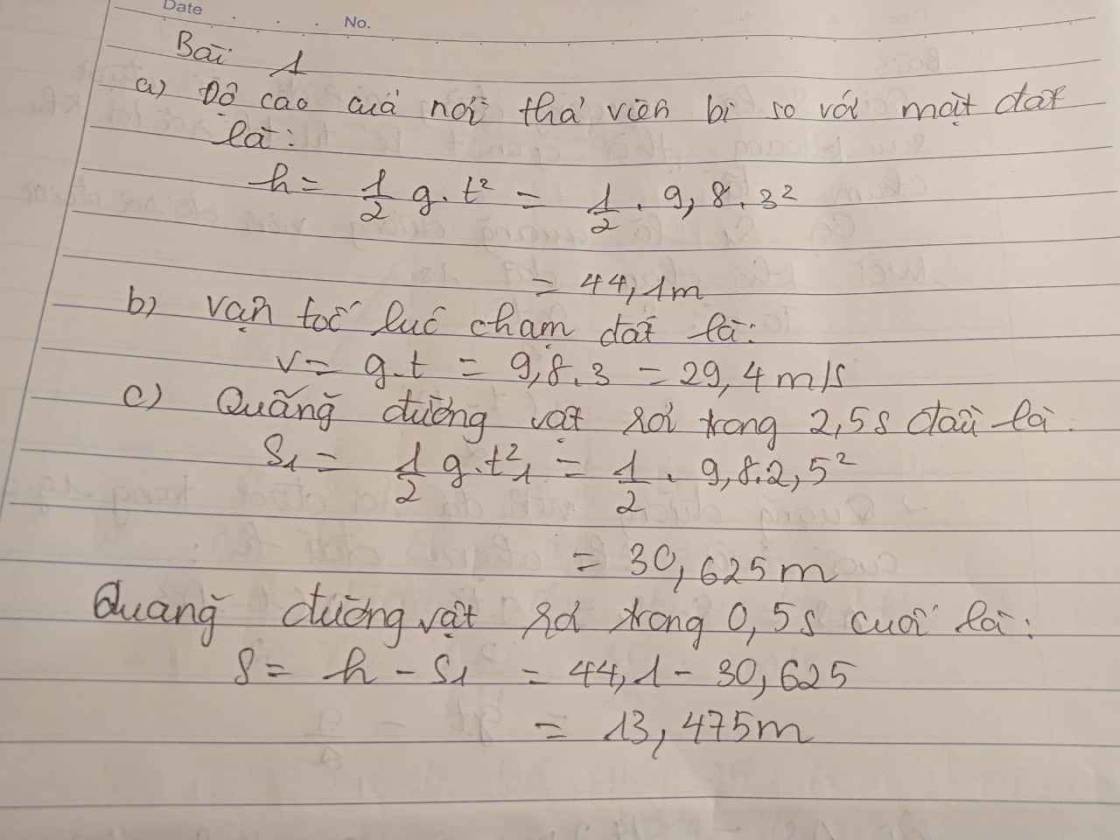 Date No.
Bài 1
a) Độ cao của nơi thả viên bi so với mặt đất
là:
h = 1/2 g.t² = 1/2 . 9,8.3²
= 44,1m
b) Vận tốc lúc chạm đất là:
v = g.t = 9,8.3 = 29,4 m/s
c) Quãng đường vật rơi trong 2,5s đầu là:
S₁ = 1/2 g.t₁² = 1/2 . 9,8.2,5²
= 30,625m
Quãng đường vật rơi trong 0,5s cuối là:
S = h - S₁ = 44,1 - 30,625
= 13,475m